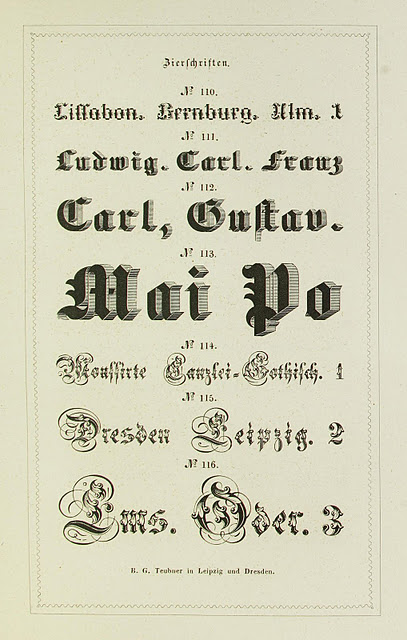 Zierschriften.
№ 110.
Lissabon. Bernburg. Ulm. 1
№ 111.
Ludwig. Carl. Franz
№ 112.
Carl, Gustav.
№ 113.
Mai Po
№ 114.
Moussirte Canzlei-Gothisch. 1
№ 115.
Dresden Leipzig. 2
№ 116.
Ems. Oder. 3
B. G. Teubner in Leipzig und Dresden.